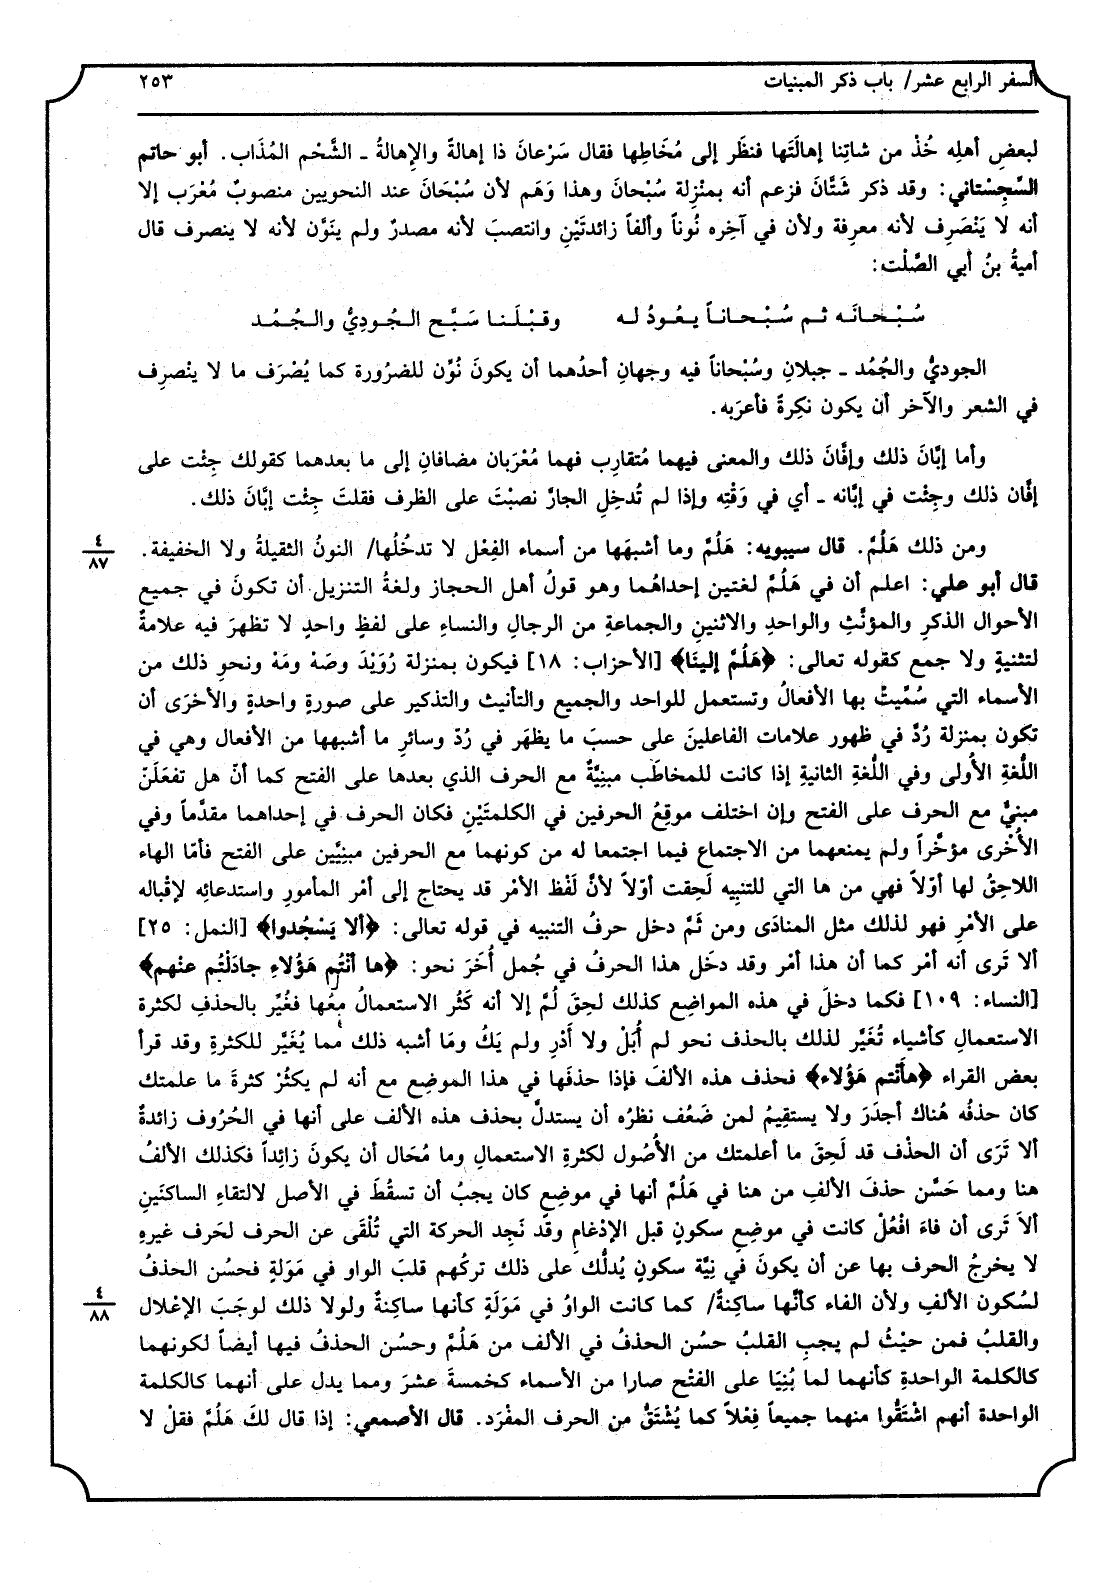 السفر الرابع عشر/ باب ذكر المبنيات
٢٥٣
لبعضِ أهلِه خُذْ من شاتِنا إهالَتَها فنظَر إلى مُخَاطِها فقال سَرْعانَ ذا إهالةً والإهالةُ ـ الشَّحْم المُذَاب. أبو حاتم
السِّجِسْتاني: وقد ذكر شَتَّانَ فزعم أنه بمنْزِلة سُبْحانَ وهذا وَهَم لأن سُبْحَانَ عند النحويين منصوبٌ مُعْرَب إلا
أنه لا يَنْصَرِف لأنه معرِفة ولأن في آخِره نُوناً وألفاً زائدتَيْنِ وانتصبَ لأنه مصدرٌ ولم ينَوَّن لأنه لا ينصرف قال
أميةُ بنُ أبي الصَّلْت:
سُبْحانَه ثم سُبْحاناً يعُودُ له وقبْلَنا سَبَّح الجُودِيُّ والجُمُد
الجوديُّ والجُمُد ـ جبلانِ وسُبْحاناً فيه وجهانِ أحدُهما أن يكونَ نُوِّن للضرُورة كما يُصْرَف ما لا ينْصرِف
في الشعر والآخر أن يكون نكِرةً فأعرَبه.
وأما إبَّانَ ذلك وإفَّانَ ذلك والمعنى فيهما مُتقارِب فهما مُعْرَبان مضافانِ إلى ما بعدهما كقولك جِئْت على
إفَّان ذلك وجِئْت في إبَّانه ـ أي في وَقْتِه وإذا لم تُدخِلِ الجارَّ نصبْتَ على الظرف فقلتَ جِئْت إبَّانَ ذلك.
ومن ذلك هَلُمَّ. قال سيبويه: هَلُمَّ وما أشبهَها من أسماء الفِعْل لا تدخُلُها/ النونُ الثقيلةُ ولا الخفيفة.
٤
٨٧
قال أبو علي: اعلم أن في هَلُمَّ لغتين إحداهُما وهو قولُ أهل الحجاز ولغةُ التنزيل أن تكونَ في جميع
الأحوال الذكرِ والمؤنَّثِ والواحدِ والاثنينِ والجماعةِ من الرجالِ والنساءِ على لفظٍ واحدٍ لا تظهرَ فيه علامةٌ
لتثنيةٍ ولا جمع كقوله تعالى: ﴿هَلُمَّ إلينَا﴾ [الأحزاب: ١٨] فيكون بمنزلة رُوَيْدَ وصَهْ ومَهْ ونحوِ ذلك من
الأسماء التي سُمِّيتْ بها الأفعالُ وتستعمل للواحد والجميع والتأنيث والتذكير على صورةٍ واحدةٍ والأخرَى أن
تكون بمنزلة رُدَّ في ظهور علامات الفاعلينَ على حسبَ ما يظهَر في رُدَّ وسائرِ ما أشبهها من الأفعال وهي في
اللُّغة الأُولى وفي اللُّغة الثانيةِ إذا كانت للمخاطَب مبنِيَّةٌ مع الحرف الذي بعدها على الفتح كما أنّ هل تفعَلَنّ
مبنيٌّ مع الحرف على الفتح وإن اختلف موقِعُ الحرفين في الكلمتَيْنِ فكان الحرف في إحداهما مقدَّماً وفي
الأُخْرى مؤخَّراً ولم يمنعهما من الاجتماع فيما اجتمعا له من كونهما مع الحرفين مبنِيَّين على الفتح فأمّا الهاء
اللاحِقُ لها أوّلاً فهي من ها التي للتنبِيه لَحِقت أوّلاً لأنَّ لَفْظ الأمْر قد يحتاج إلى أمْر المأمورِ واستدعائِه لإقْباله
على الأمْرِ فهو لذلك مثل المنادَى ومن ثَمَّ دخل حرفُ التنبيه في قوله تعالى: ﴿ألا يَسْجُدوا﴾ [النمل: ٢٥]
ألا تَرى أنه أمْر كما أن هذا أمْر وقد دخَل هذا الحرفُ في جُمل أُخَرَ نحو: ﴿ها أنْتُم هَؤُلاءِ جادَلْتُم عنْهم﴾
[النساء: ١٠٩] فكما دخلَ في هذه المواضِع كذلك لحِقَ لُمَّ إلا أنه كَثُر الاستعمالُ معَها فغُيِّر بالحذفِ لكثرة
الاستعمالِ كأشياء تُغَيَّر لذلك بالحذف نحو لم أُبَلْ ولا أَدْرِ ولم يَكُ ومَا أشبه ذلك مما يُغَيَّر للكثرةِ وقد قرأ
بعض القراء ﴿هأَنْتم هَؤُلاء﴾ فحذف هذه الألفَ فإذا حذفَها في هذا الموضِع مع أنه لم يكثُرْ كثرةَ ما علمتك
كان حذفُه هُناك أجدَرَ ولا يستقِيمُ لمن ضَعُف نظرُه أن يستدلَّ بحذف هذه الألف على أنها في الحُرُوف زائدةٌ
ألا تَرَى أن الحذْف قد لَحِقَ ما أعلمتك من الأُصُول لكثرةِ الاستعمالِ وما مُحَال أن يكونَ زائِداً فكذلك الألفُ
هنا ومما حَسَّن حذفَ الألفِ من هنا في هَلُمَّ أنها في موضِعٍ كان يجبُ أن تسقُطَ في الأصل لالتقاءِ الساكنَينِ
ألاَ تَرى أن فاءَ افْعُلْ كانت في موضِعِ سكونٍ قبل الإدْغامِ وقد نَجِد الحركة التي تُلْقَى عن الحرف لحَرف غيرِهِ
لا يخرجُ الحرف بها عن أن يكونَ في نِيَّة سكونٍ يُدلُّك على ذلك تركُهم قلبَ الواوِ في مَوَلةٍ فحسُن الحذفُ
لسُكون الألفِ ولأن الفاء كأنَّها ساكِنةٌ/ كما كانت الواوُ في مَوَلَةٍ كأنها ساكنةٌ ولولا ذلك لوجَبَ الإعْلال
٤
٨٨
والقلبُ فمن حيْثُ لم يجبِ القلبُ حسُن الحذفُ في الألف من هَلُمَّ وحسُن الحذفُ فيها أيضاً لكونهما
كالكلمة الواحدةِ كأنهما لما بُنِيَا على الفتْح صارا من الأسماء كخمسةَ عشرَ ومما يدل على أنهما كالكلمة
الواحدة أنهم اشْتَقُّوا منهما جميعاً فِعْلاً كما يُشْتَقُّ من الحرف المفْرَد. قال الأصمعي: إذا قال لكَ هَلُمَّ فقلْ لا